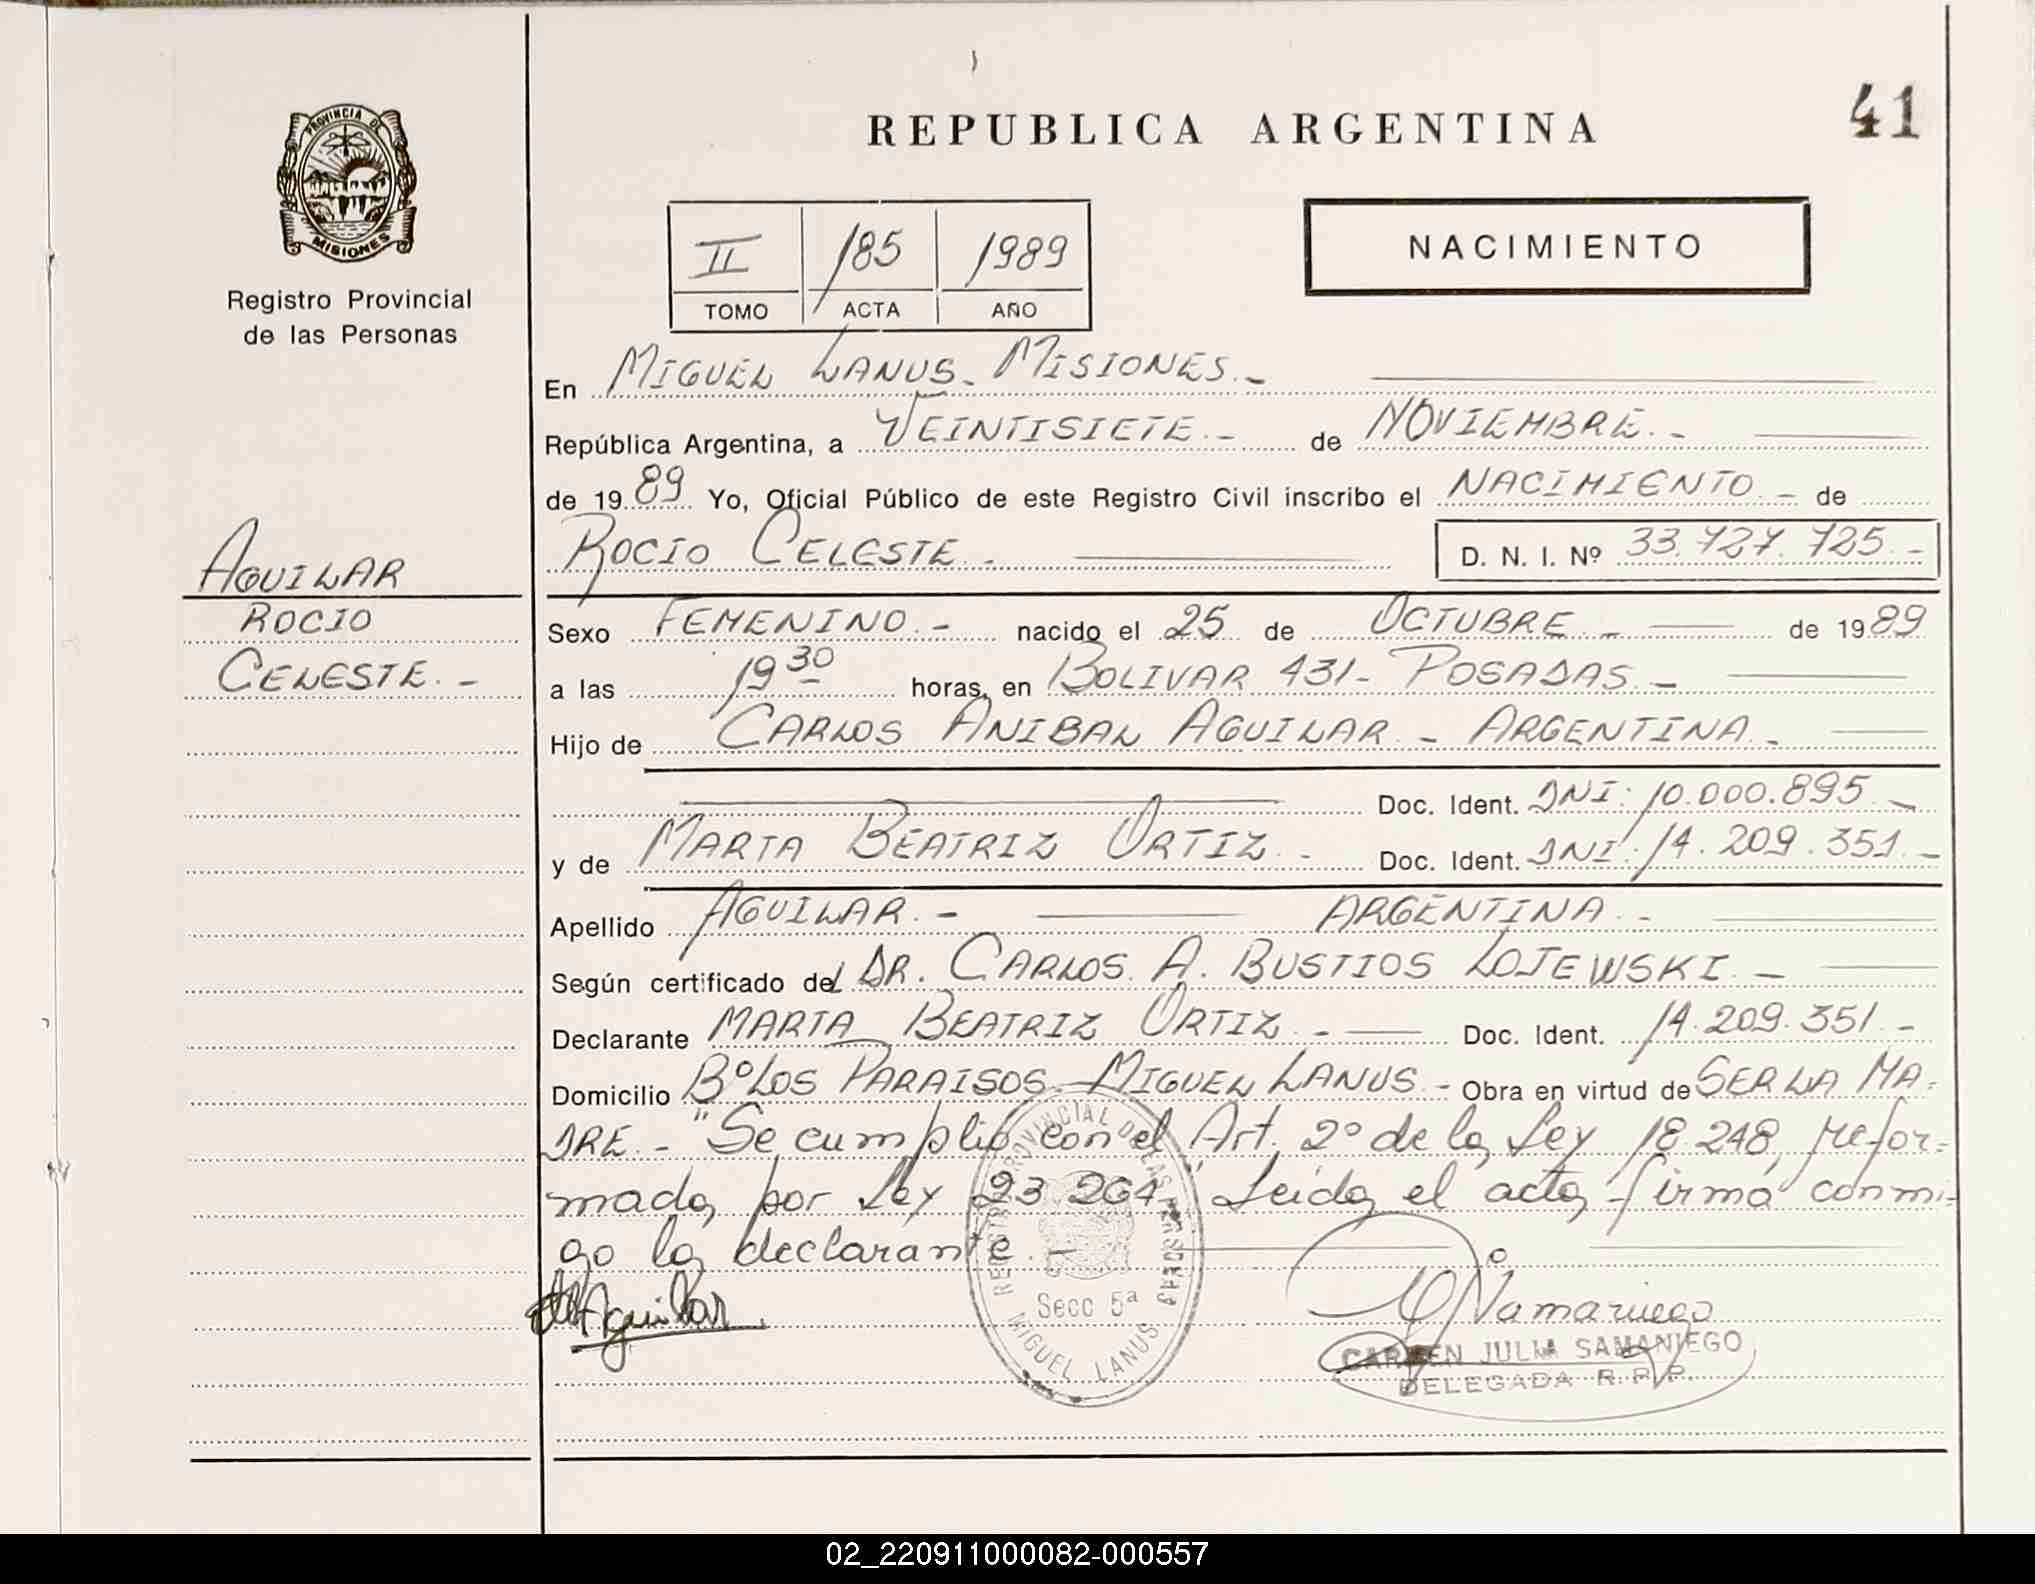 41
REPUBLICA ARGENTINA
PROVINCIA DE
MISIONES
Registro Provincial
de las Personas
II 185 1989
TOMO ACTA AÑO
NACIMIENTO
En MIGUEL LANUS - MISIONES.-
República Argentina, a VEINTISIETE.- de NOVIEMBRE.-
de 1989 Yo, Oficial Público de este Registro Civil inscribo el NACIMIENTO.- de
ROCIO CELESTE.- D. N. I. Nº 33.727.725.-
AGUILAR
ROCIO
CELESTE.-
Sexo FEMENINO.- nacido el 25 de OCTUBRE.- de 1989
a las 19 30 horas, en BOLIVAR 431- POSADAS.-
Hijo de CARLOS ANIBAL AGUILAR - ARGENTINA.-
Doc. Ident. DNI: 10.000.895.-
y de MARTA BEATRIZ ORTIZ.- Doc. Ident. DNI: 14.209.351.-
Apellido AGUILAR.- ARGENTINA.-
Según certificado del DR. CARLOS A. BUSTIOS LOJEWSKI.-
Declarante MARTA BEATRIZ ORTIZ.- Doc. Ident. 14.209.351.-
Domicilio Bº LOS PARAISOS - MIGUEL LANUS.- Obra en virtud de SER LA MA=
DRE.- "Se cumplio con el Art. 2º de la Ley 18.248, refor=
mada por Ley 23.264" Leida el acta firma conmi=
go la declarante.-
Aguilar
REGISTRO PROVINCIAL DE LAS PERSONAS
Secc 5ª
MIGUEL LANUS
Samaniego
CARMEN JULIA SAMANIEGO
DELEGADA R. P. P.
02_220911000082-000557